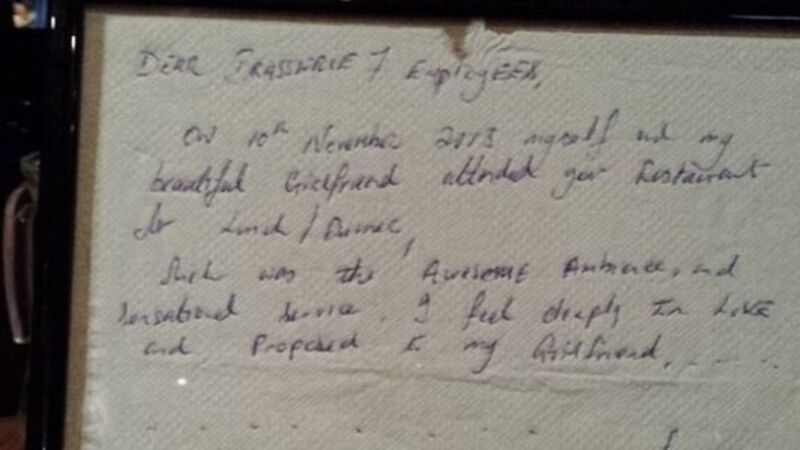 DEAR BRASSERIE 7 EmployEES,
On 10th November 2013 myself and my
beautiful Girlfriend attended your Restaurant
for Lunch/Dinner,
Such was the Awesome Ambience, and
Sensational Service, I feel deeply In LOVE
and Proposed to my Girlfriend, ....
. . . . . . .